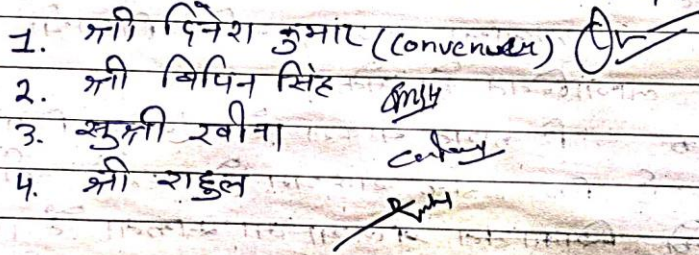 1. श्री दिनेश कुमार (Convenuer)
2. श्री बिपिन सिंह
3. सुश्री रवीना
4. श्री राहुल